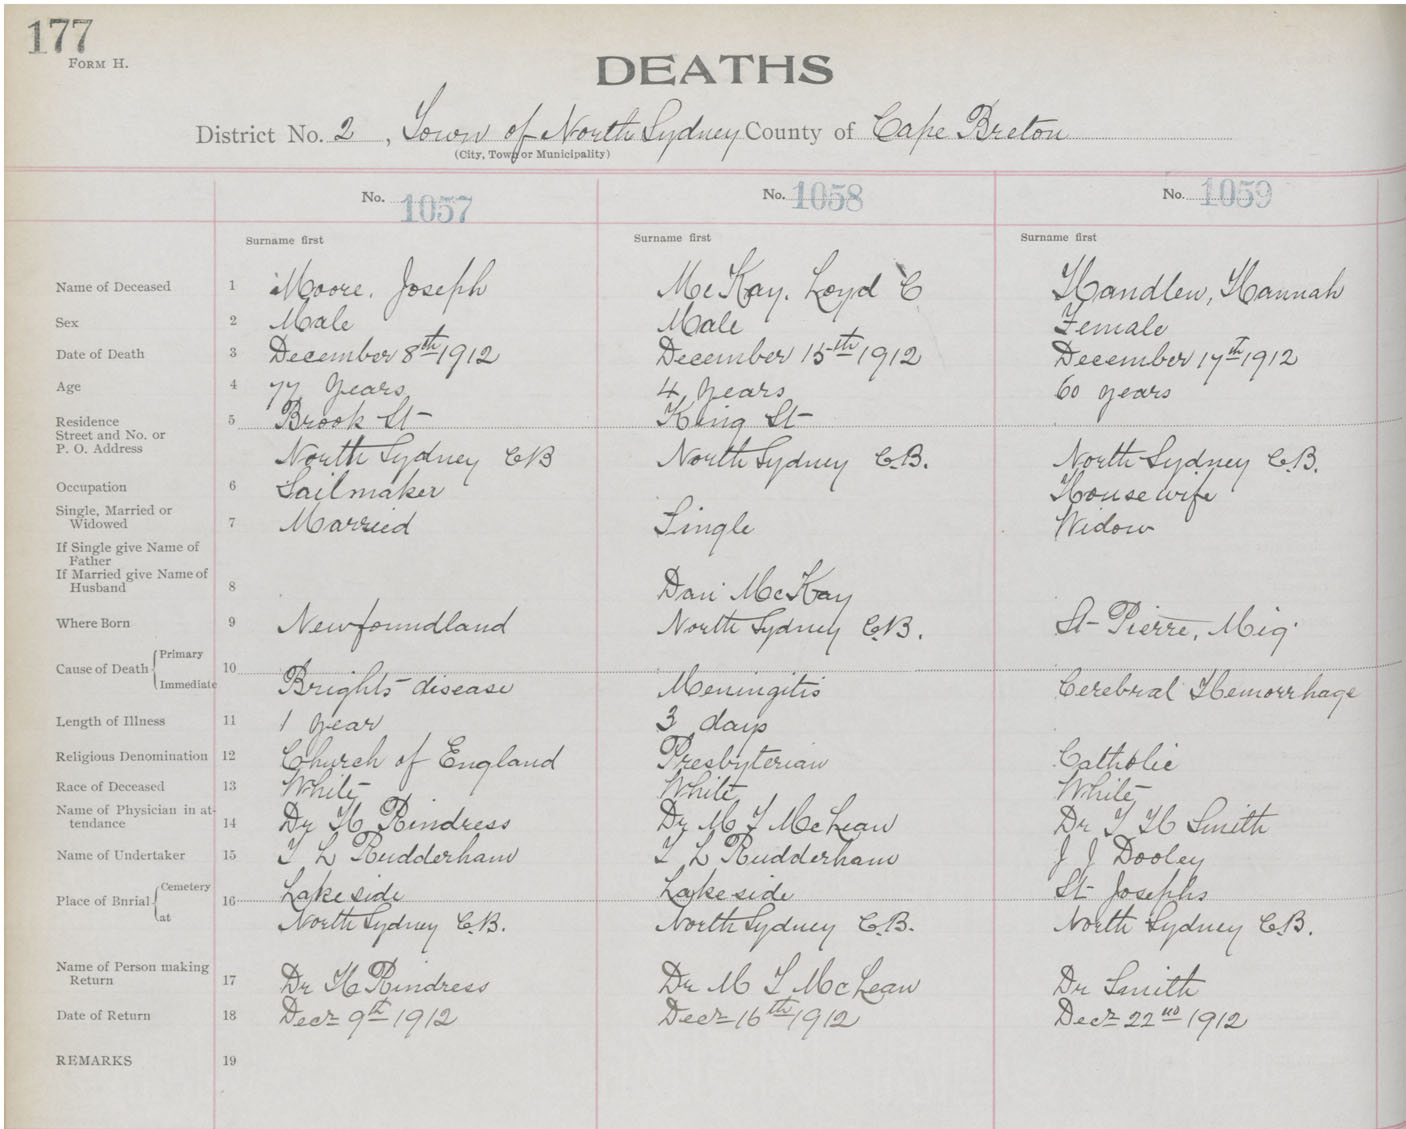 177
FORM H.
DEATHS
District No. 2, Town of North Sydney County of Cape Breton
(City, Town or Municipality)
No. 1057 No. 1058 No. 1059
Surname first Surname first Surname first
Name of Deceased 1 Moore, Joseph McKay, Loyd C Handlew, Hannah
Sex 2 Male Male Female
Date of Death 3 December 8th 1912 December 15th 1912 December 17th 1912
Age 4 77 years 4 years 60 years
Residence 5 Brook St King St
Street and No. or
P. O. Address North Sydney CB North Sydney C.B. North Sydney C.B.
Occupation 6 Sailmaker Housewife
Single, Married or
Widowed 7 Married Single Widow
If Single give Name of
Father
If Married give Name of
Husband 8 Dan McKay
Where Born 9 Newfoundland North Sydney C.B. St Pierre, Miq.
Cause of Death Primary 10
Immediate Brights disease Meningitis Cerebral Hemorrhage
Length of Illness 11 1 year 3 days
Religious Denomination 12 Church of England Presbyterian Catholic
Race of Deceased 13 White White White
Name of Physician in at-
tendance 14 Dr H Rindress Dr M T McLean Dr T H Smith
Name of Undertaker 15 T L Rudderham T L Rudderham J J Dooley
Place of Burial Cemetery 16 Lakeside Lakeside St Josephs
at North Sydney C.B. North Sydney C.B. North Sydney C.B.
Name of Person making
Return 17 Dr H Rindress Dr M T McLean Dr Smith
Date of Return 18 Decr 9th 1912 Decr 16th 1912 Decr 22nd 1912
REMARKS 19